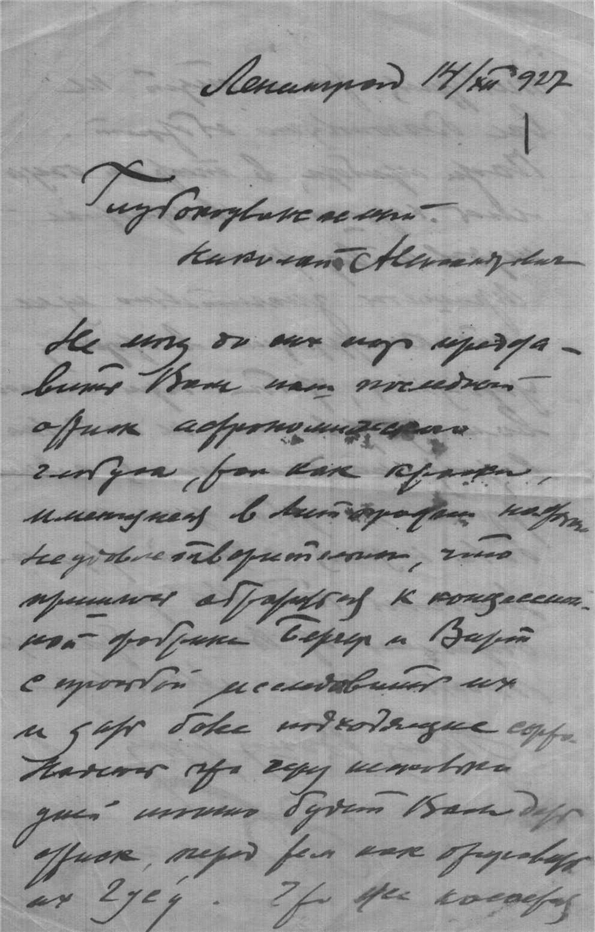 Ленинград 14/XII 927
Глубокоуважаемый
Николай Александрович
Не могу до сих пор предста-
вить Вам наш последний
оттиск астрономического
глобуса, так как краски,
имеющиеся в литографии
неудовлетворительны, что
пришлось обращаться к концессион-
ной фабрике Бергер и Вирт
с просьбой исследовать их
и дать более подходящие сорта
Надеюсь что через несколько
дней можно будет Вам дать
оттиск, перед тем как
их ГУСу. Что же касается